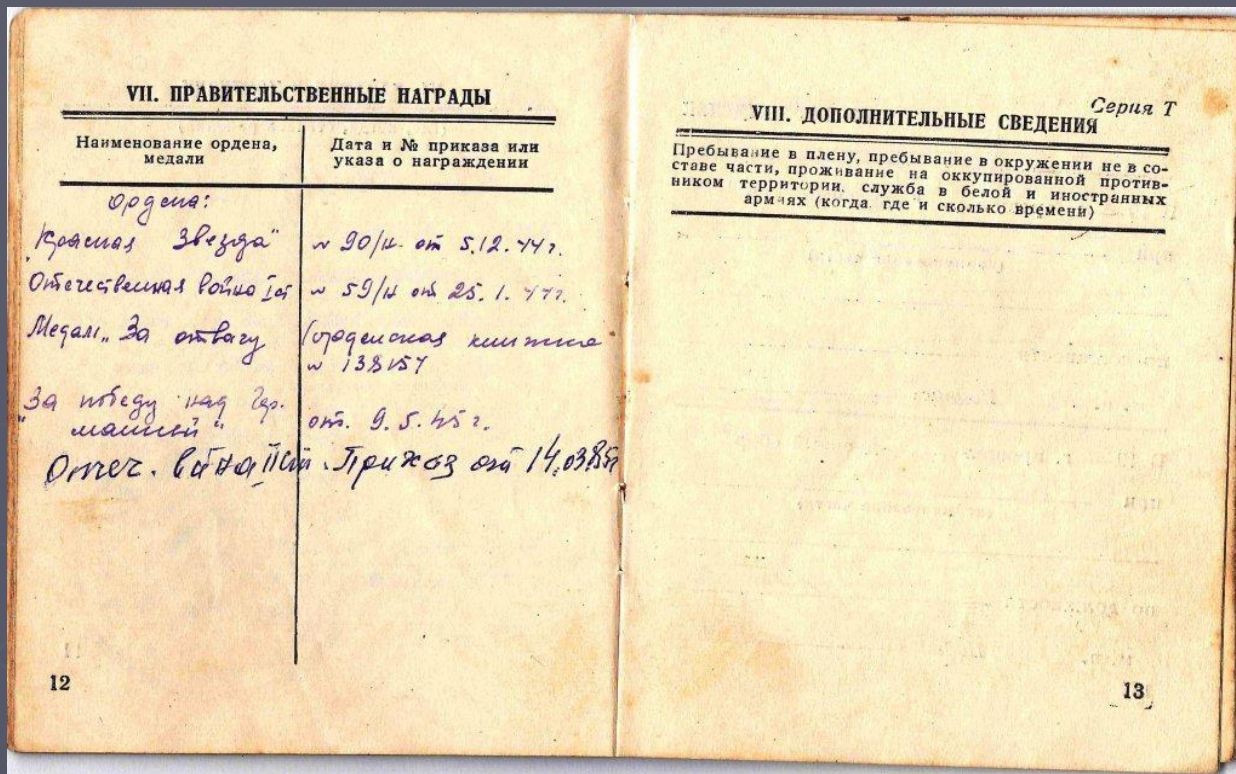 VII. ПРАВИТЕЛЬСТВЕННЫЕ НАГРАДЫ
Наименование ордена,
медали
Дата и № приказа или
указа о награждении
Ордена:
"Красная Звезда" № 90/н от 5.12.44г.
Отечественная война I ст № 59/н от 25.1.44г.
Медаль „За отвагу орденская книжка
№ 138157
„За победу над Гер-
манией" от. 9.5.45г.
Отеч. война II ст. Приказ от 14.03.85г
12
Серия Т
VIII. ДОПОЛНИТЕЛЬНЫЕ СВЕДЕНИЯ
Пребывание в плену, пребывание в окружении не в со-
ставе части, проживание на оккупированной против-
ником территории, служба в белой и иностранных
армиях (когда, где и сколько времени)
13